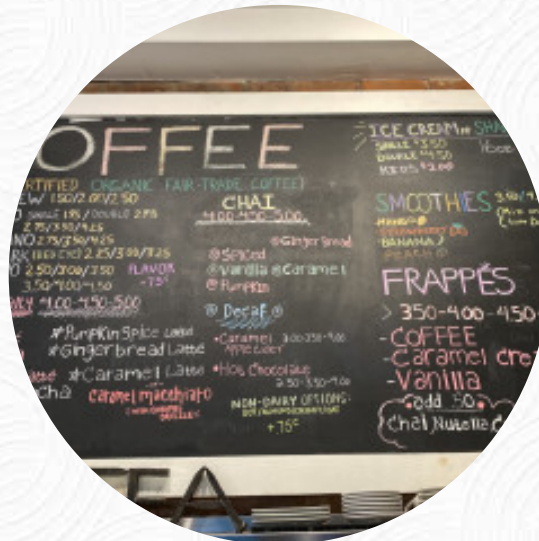 OFFEE
RTIFIED ORGANIC FAIR-TRADE COFFEE
EW 1.50/2.00/2.50
SINGLE 1.95 / DOUBLE 2.75
2.75/3.50/4.25
NO 2.75/3.50/4.25
RK (RED EYE) 2.25/3.00/3.25
O 2.50/3.00/3.50 FLAVOR
3.50/4.00/4.50 .75¢
4.00-4.50-5.00
*Pumpkin Spice Latte
*Gingerbread Latte
*Caramel Latte
cha
Caramel macchiato
CHAI
4.00-4.50-5.00
Gingerbread
Spiced
Vanilla
Caramel
Pumpkin
Decaf
Caramel
Apple Cider
Hot Chocolate
2.50-3.50-4.00
NON-DAIRY OPTIONS:
+.75¢
ICE CREAM or SHA
SINGLE $3.50
DOUBLE $4.50
KIDS $2.00
SMOOTHIES
MANGO
STRAWBERRY
BANANA
PEACH
FRAPPÉS
> 350-400-450
-COFFEE
-Caramel Cre
-Vanilla
add .50
Chai, Nutella